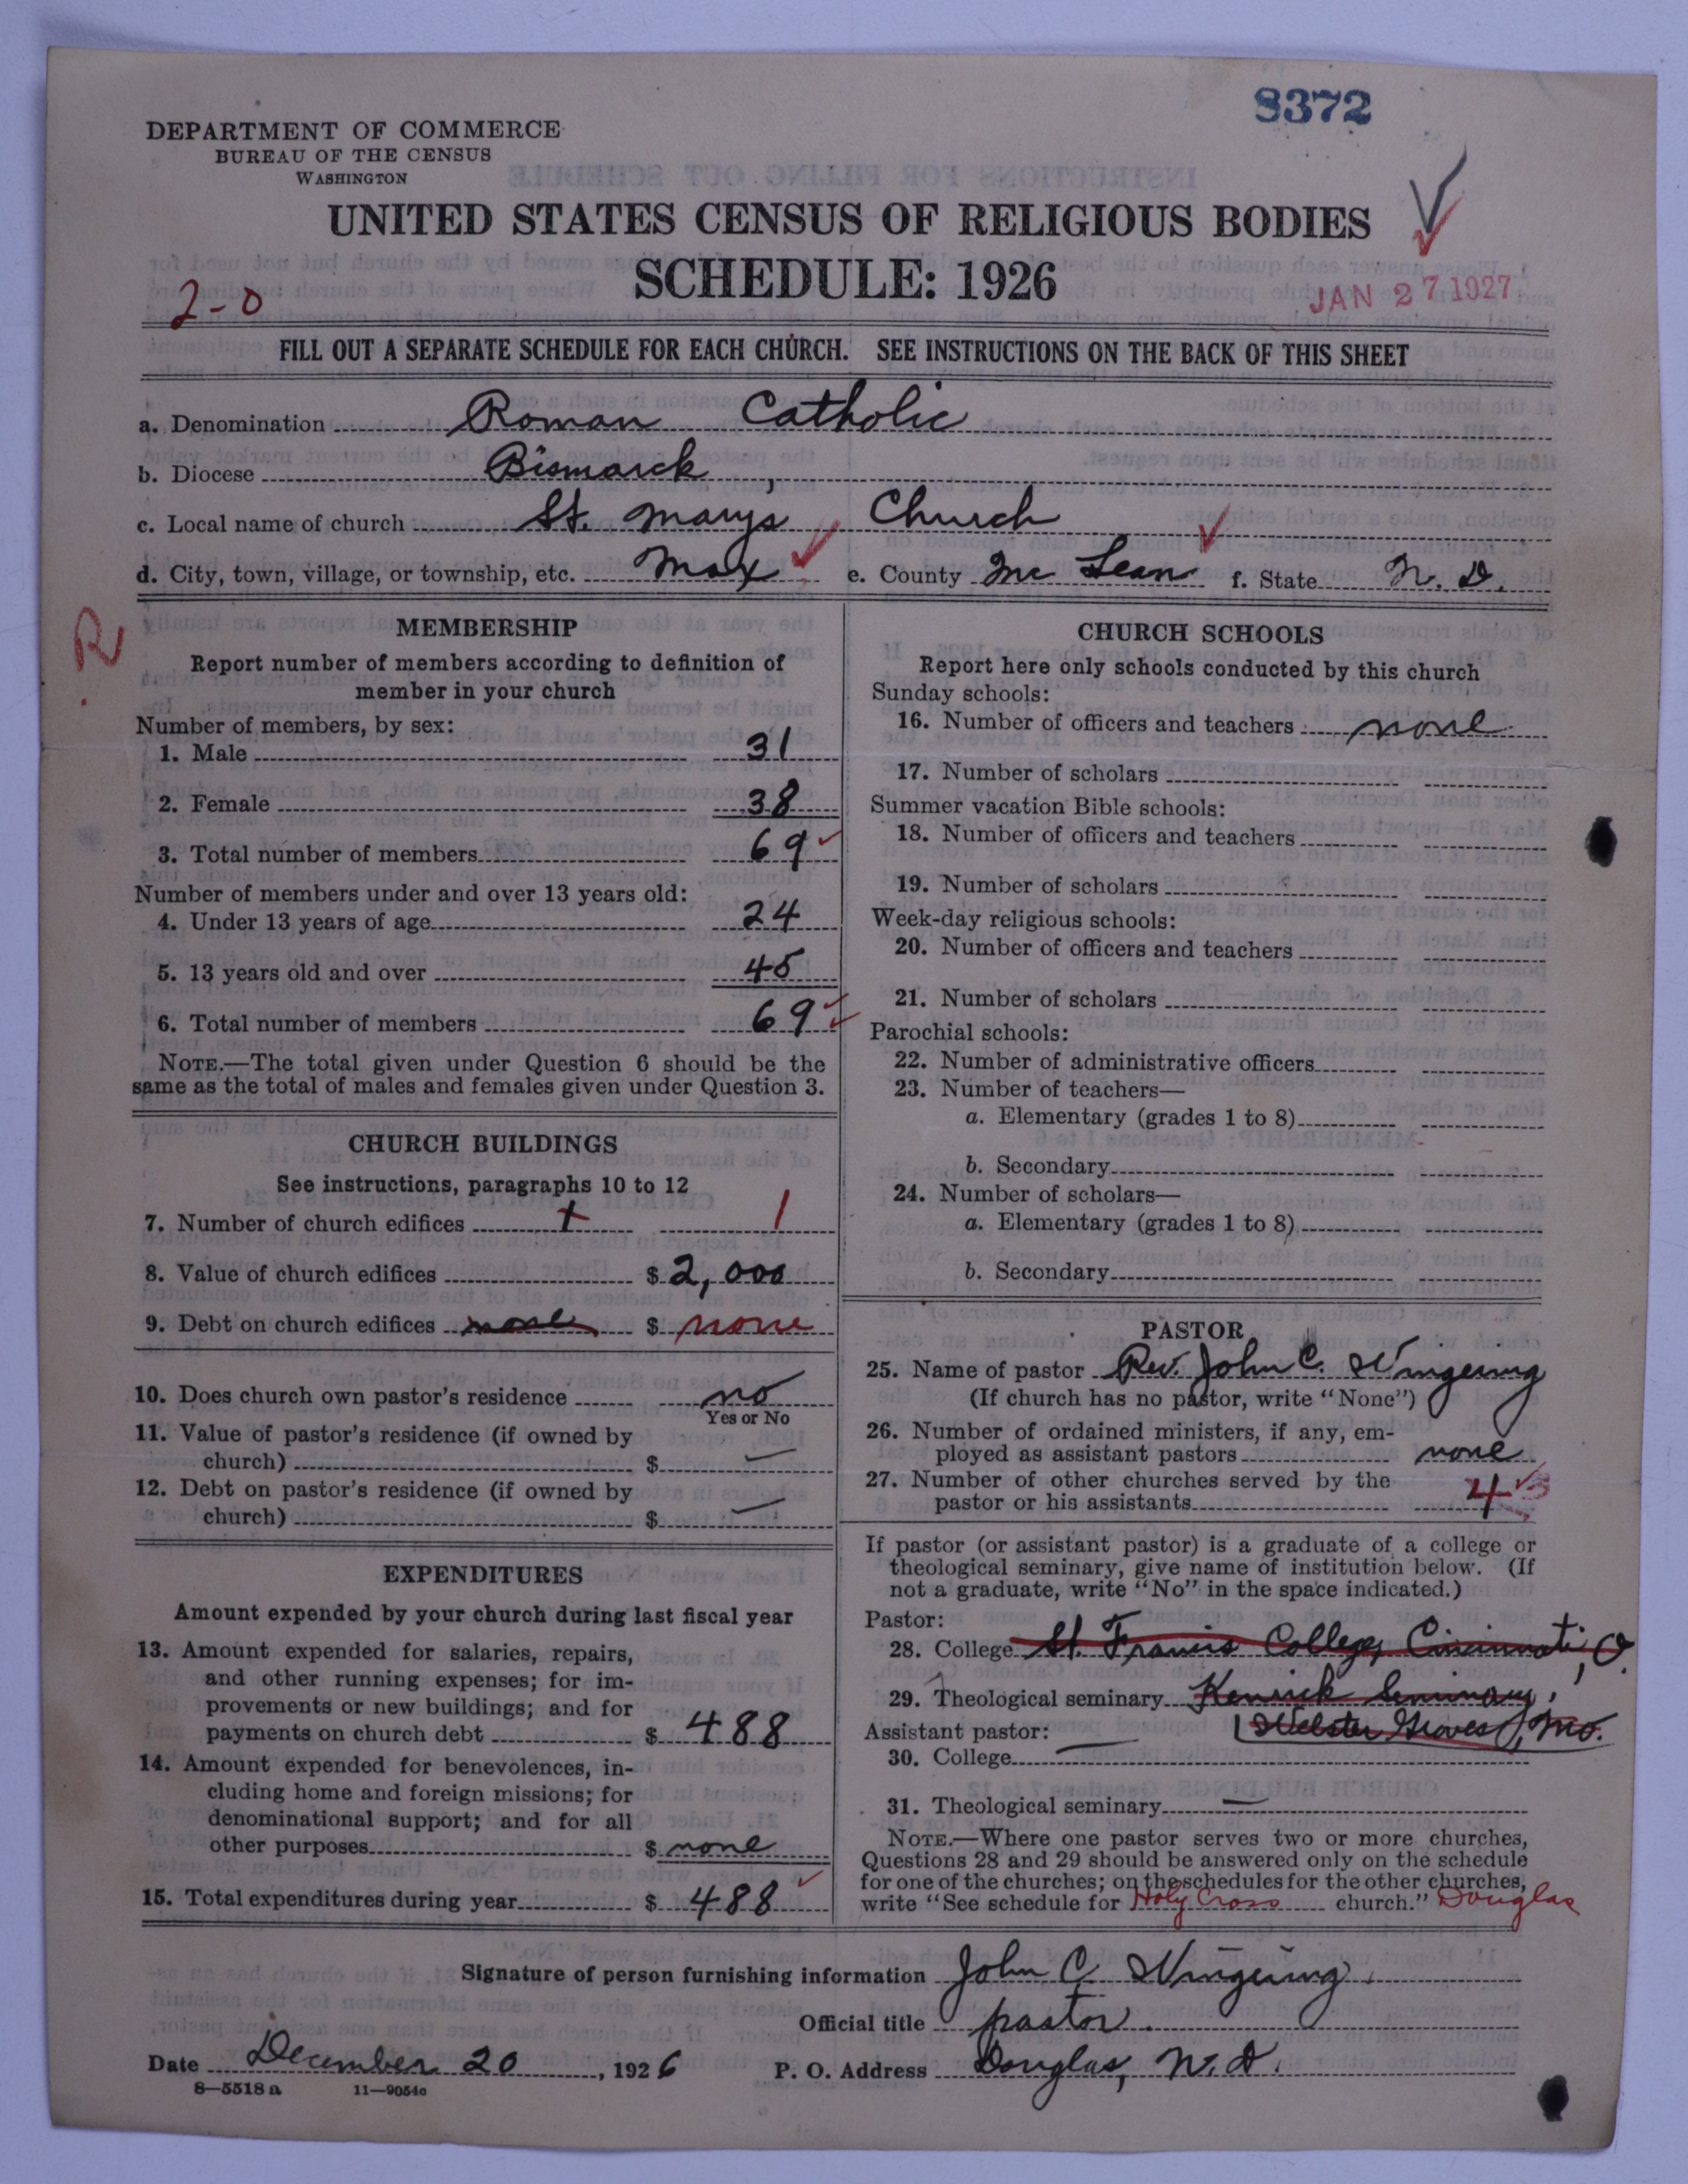 8372
DEPARTMENT OF COMMERCE
BUREAU OF THE CENSUS
WASHINGTON
UNITED STATES CENSUS OF RELIGIOUS BODIES
SCHEDULE: 1926
2-0
JAN 27 1927
FILL OUT A SEPARATE SCHEDULE FOR EACH CHURCH. SEE INSTRUCTIONS ON THE BACK OF THIS SHEET
a. Denomination Roman Catholic
b. Diocese Bismarck,
c. Local name of church St. Marys Church
d. City, town, village, or township, etc. Max e. County Mc Lean f. State N. D.
R
MEMBERSHIP
Report number of members according to definition of
member in your church
Number of members, by sex:
1. Male 31
2. Female 38
3. Total number of members 69
Number of members under and over 13 years old:
4. Under 13 years of age 24
5. 13 years old and over 45
6. Total number of members 69
NOTE.—The total given under Question 6 should be the
same as the total of males and females given under Question 3.
CHURCH BUILDINGS
See instructions, paragraphs 10 to 12
7. Number of church edifices 1 1
8. Value of church edifices $ 2,000
9. Debt on church edifices none $ none
10. Does church own pastor's residence no
Yes or No
11. Value of pastor's residence (if owned by
church) $ —
12. Debt on pastor's residence (if owned by
church) $ —
EXPENDITURES
Amount expended by your church during last fiscal year
13. Amount expended for salaries, repairs,
and other running expenses; for im-
provements or new buildings; and for
payments on church debt $ 488
14. Amount expended for benevolences, in-
cluding home and foreign missions; for
denominational support; and for all
other purposes $ none
15. Total expenditures during year $ 488
CHURCH SCHOOLS
Report here only schools conducted by this church
Sunday schools:
16. Number of officers and teachers none
17. Number of scholars
Summer vacation Bible schools:
18. Number of officers and teachers
19. Number of scholars
Week-day religious schools:
20. Number of officers and teachers
21. Number of scholars
Parochial schools:
22. Number of administrative officers
23. Number of teachers—
a. Elementary (grades 1 to 8)
b. Secondary
24. Number of scholars—
a. Elementary (grades 1 to 8)
b. Secondary
PASTOR
25. Name of pastor Rev. John C. Wingering
(If church has no pastor, write "None")
26. Number of ordained ministers, if any, em-
ployed as assistant pastors none
27. Number of other churches served by the
pastor or his assistants 4
If pastor (or assistant pastor) is a graduate of a college or
theological seminary, give name of institution below. (If
not a graduate, write "No" in the space indicated.)
Pastor:
28. College St. Francis College, Cincinnati, O.
29. Theological seminary Kenrick Seminary,
Assistant pastor: Webster Groves, Mo.
30. College —
31. Theological seminary —
NOTE.—Where one pastor serves two or more churches,
Questions 28 and 29 should be answered only on the schedule
for one of the churches; on the schedules for the other churches,
write "See schedule for Holy Cross church." Douglas
Signature of person furnishing information John C. Wingering
Official title pastor.
Date December 20, 1926 P. O. Address Douglas, N. D.
8—5518 a 11—9054c